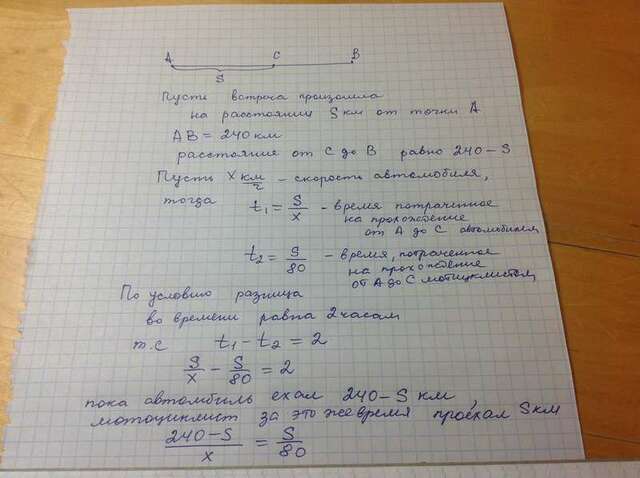 A C B
S
Пусть встреча произошла
на расстоянии S км от точки А
АВ = 240 км
расстояние от С до В равно 240 - S
Пусть x км/ч - скорость автомобиля,
тогда t₁ = S/x - время потраченное
на прохождение
от А до С автомобилем
t₂ = S/80 - время, потраченное
на прохождение
от А до С мотоциклистом
По условию разница
во времени равна 2 часам
т.е t₁ - t₂ = 2
S/x - S/80 = 2
пока автомобиль ехал 240 - S км,
мотоциклист за это же время проехал S км
240 - S/x = S/80